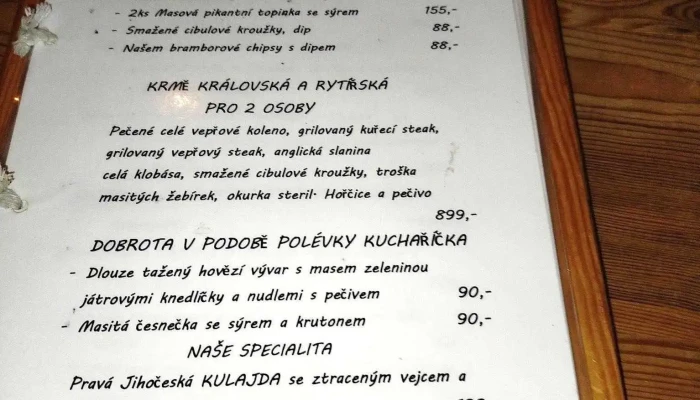 - 2ks Masová pikantní topinka se sýrem 155,-
- Smažené cibulové kroužky, dip 88,-
- Našem bramborové chipsy s dipem 88,-
KRMĚ KRÁLOVSKÁ A RYTÍŘSKÁ
PRO 2 OSOBY
Pečené celé vepřové koleno, grilovaný kuřecí steak,
grilovaný vepřový steak, anglická slanina
celá klobása, smažené cibulové kroužky, troška
masitých žebírek, okurka steril. Hořčice a pečivo
899,-
DOBROTA V PODOBĚ POLÉVKY KUCHAŘÍČKA
- Dlouze tažený hovězí vývar s masem zeleninou
játrovými knedlíčky a nudlemi s pečivem 90,-
- Masitá česnečka se sýrem a krutonem 90,-
NAŠE SPECIALITA
Pravá Jihočeská KULAJDA se ztraceným vejcem a